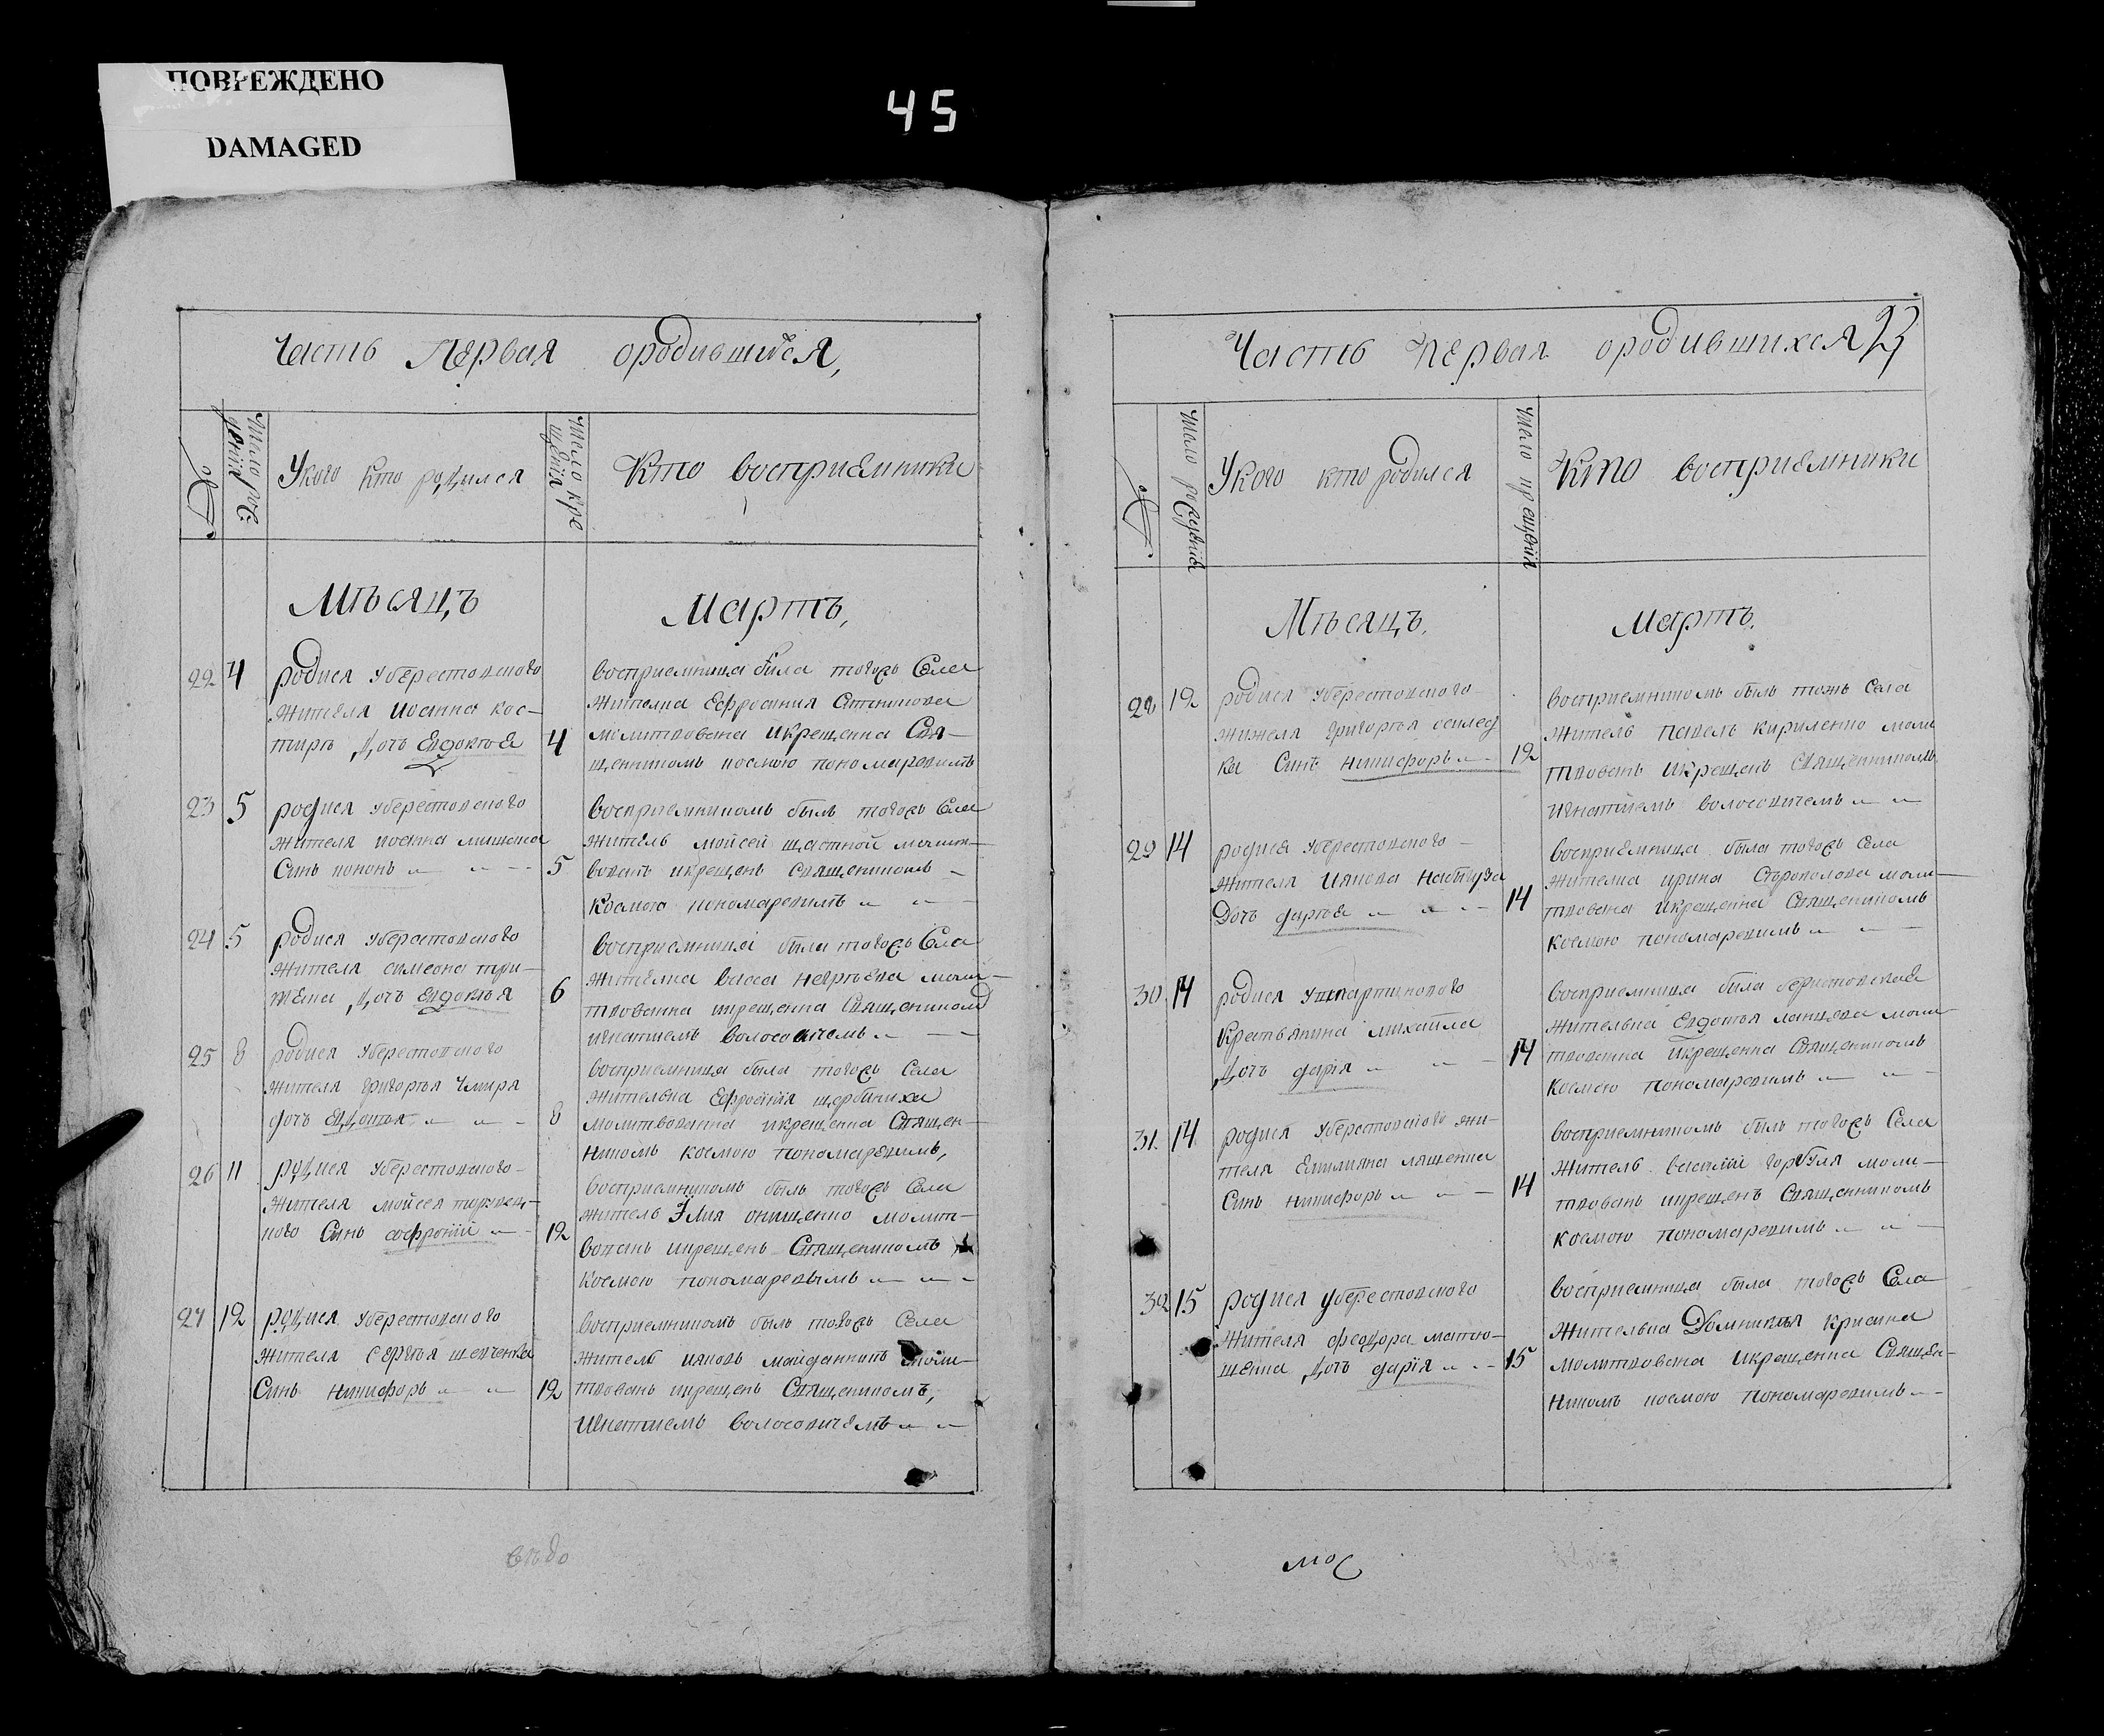 ПОВРЕЖДЕНО
DAMAGED
45
Часть Первая ородившихся,
№
Число рож
дения
Укого кто родился
Число кре
щения
Кто восприемники
Мѣсяцъ Мартъ,
22 4 родися уберестовского
жителя иоанна кос-
тиръ дочь Евдокъя 4
восприемница была тогожъ Села
жителка Ефросиния
молитвована икрещенна Свя-
щенникомъ космою пономаревимъ
23 5 родися уберестовского
жителя иоанна мищенка
Синъ кононъ 5
восприемникомъ былъ тогожъ Села
житель мойсей щастной молит-
вованъ икрещенъ священникомъ
Космою пономаревимъ
24 5 родися уберестовского
жителя симеона три-
жена дочь Евдокъя 6
восприемница была тогожъ Села
жителка васса моли-
твованна икрещенна Священникомъ
игнатиемъ волосовичемъ
25 8 родися уберестовского
жителя григоръя Чмиря
дочь Евдокъя 8
восприемница была тогожъ Села
жителька Ефросиния щербачиха
молитвованна икрещенна Священ-
никомъ космою пономаревимъ,
26 11 родися уберестовского
жителя мойсея
ного Синъ софроний 12
восприемникомъ былъ тогожъ Села
житель Илия онищенко молит-
вованъ икрещенъ Священникомъ
космою пономаревымъ
27 12 родися уберестовского
жителя сергъя шевченка
Синъ никифоръ 12
восприемникомъ былъ тогожъ Села
житель яковъ майданникъ моли-
твованъ икрещенъ Священникомъ,
Игнатиемъ волосовичемъ
вѣдо
Часть Первая ородившихся 23
№
Число рождения
Укого кто родился
Число крещения
Кто восприемники
Мѣсяцъ. Мартъ.
28 12 родися уберестовского
жителя григоръя
ка Синъ никифоръ 12
восприемникомъ былъ тожъ Села
житель павелъ кириленко моли
твованъ икрещенъ Священникомъ
игнатиемъ волосовичемъ
29 14 родися уберестовского
жителя иякова
Дочь даръя 14
восприемница была тогожъ Села
жителка ирина моли-
твована икрещенна Священникомъ
космою пономаревимъ
30 14 родися
Крестьянина михаила
дочь дария 14
восприемница была берестовская
жителька Евдокъя моли
твованна икрещенна Священникомъ
космою пономаревимъ
31 14 родися уберестовского жи-
теля Емилияна ляшенка
Синъ никифоръ 14
восприемникомъ былъ тогожъ Села
житель василий горбуля моли-
твованъ икрещенъ Священникомъ
космою пономаревимъ
32 15 родися уберестовского
жителя феодора матю-
шенка дочь дария 15
восприемница была тогожъ Села
жителька Домникия
молитвована икрещенна Священ-
никомъ космою пономаревимъ
мос